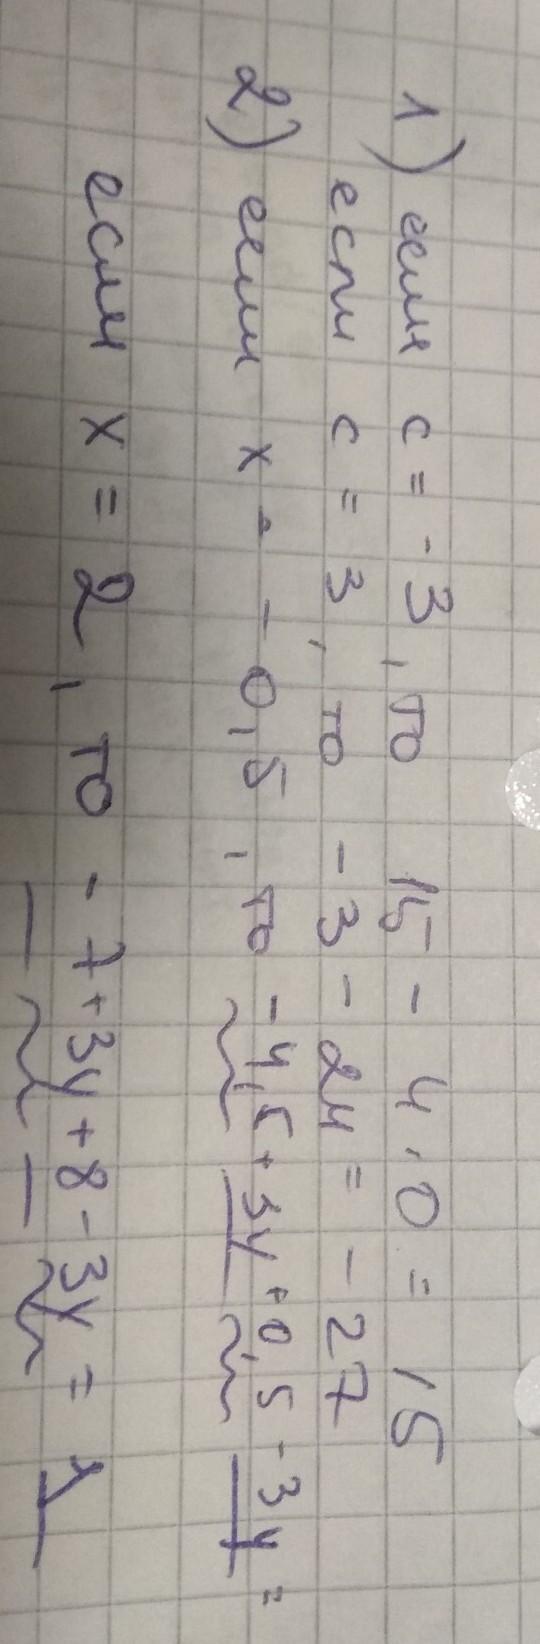 1) если c = -3, то 15 - 4 · 0 = 15
если c = 3, то -3 - 24 = -27
2) если x = -0,5, то -4,5 + 3y + 0,5 - 3y =
если x = 2, то -7 + 3y + 8 - 3y = 1